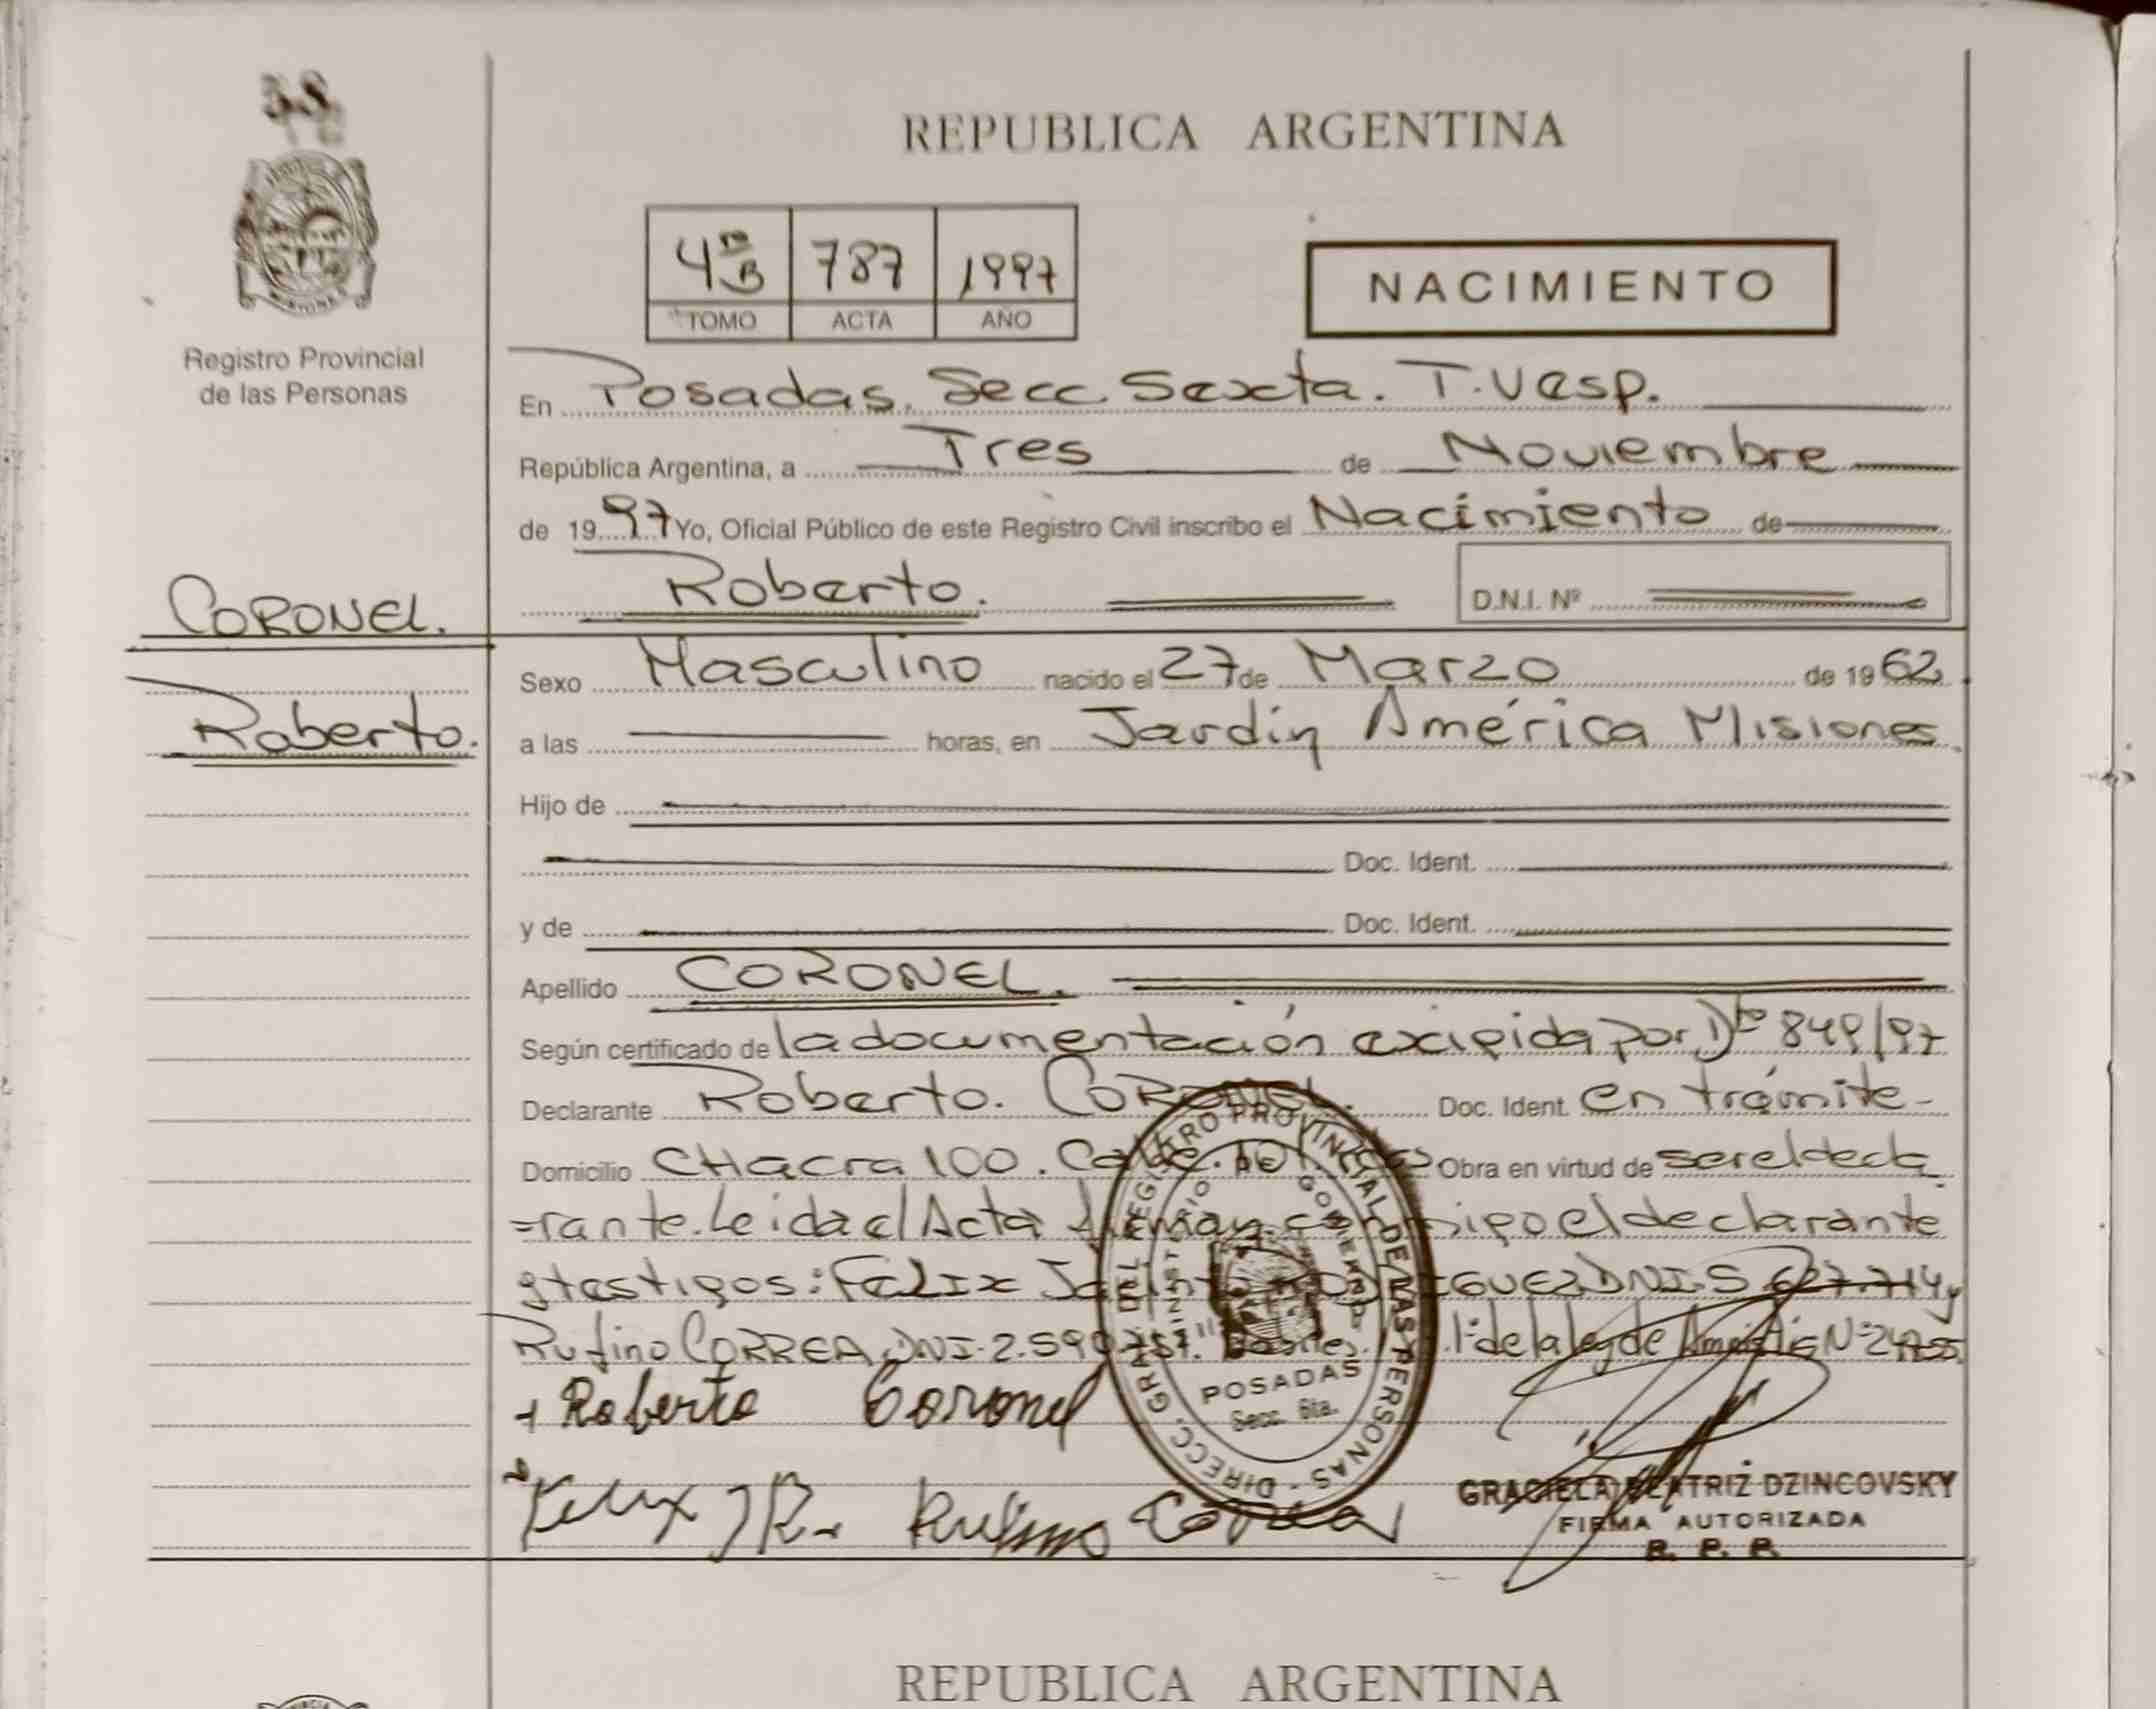 REPUBLICA ARGENTINA
4to B 787 1997
TOMO ACTA AÑO
NACIMIENTO
Registro Provincial
de las Personas
En Posadas. Secc. Sexta. T. Vesp.
República Argentina, a Tres de Noviembre
de 1997 Yo, Oficial Público de este Registro Civil inscribo el Nacimiento de
Roberto. D.N.I. Nº
CORONEL.
Roberto.
Sexo Masculino nacido el 27 de Marzo de 1962
a las horas, en Jardín América Misiones.
Hijo de
Doc. Ident.
y de Doc. Ident.
Apellido CORONEL.
Según certificado de la documentación exigida por Dto 849/97
Declarante Roberto. CORONEL. Doc. Ident. en trámite-
Domicilio CHacra 100. Obra en virtud de ser el decla
=rante. Leida el Acta firman conmigo el declarante
y testigos: FELIX DNI. 5 627.714 y
Rufino CORREA, DNI. 2.590 1º de la ley de Amnistía Nº 24755
Roberto Coronel
Felix J R. Rufino Correa
DIRECC. GRAL. DEL REGISTRO PROVINCIAL DE LAS PERSONAS
MINISTERIO DE GOBIERNO
POSADAS
Secc. 6ta.
GRACIELA BEATRIZ DZINCOVSKY
FIRMA AUTORIZADA
R. P. P.
REPUBLICA ARGENTINA